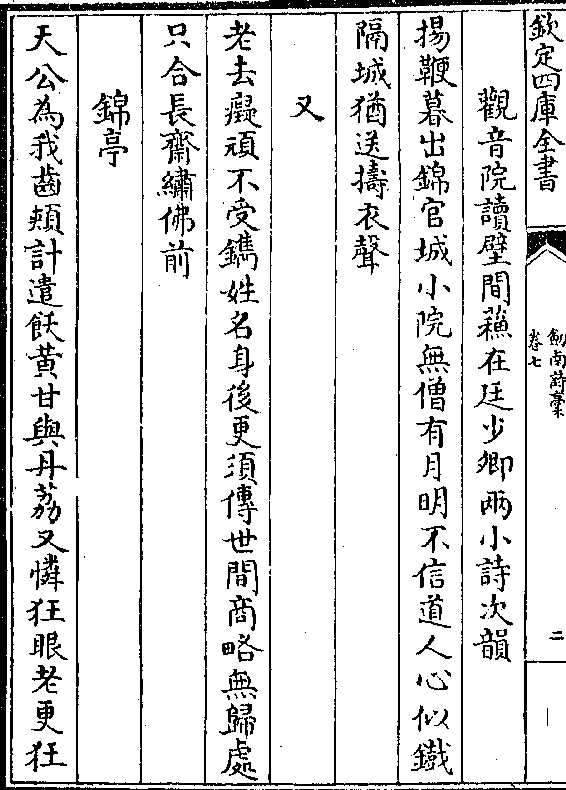 欽定四庫全書
劍南詩稾
卷七
二
觀音院讀壁間蘓在廷少卿兩小詩次韻
揚鞭暮出錦官城小院無僧有月明不信道人心似鐵
隔城猶送擣衣聲
又
老去癡頑不受鐫姓名身後更須傳世間商略無歸處
只合長齋繡佛前
錦亭
天公為我齒頰計遣飫黄甘與丹荔又憐狂眼老更狂